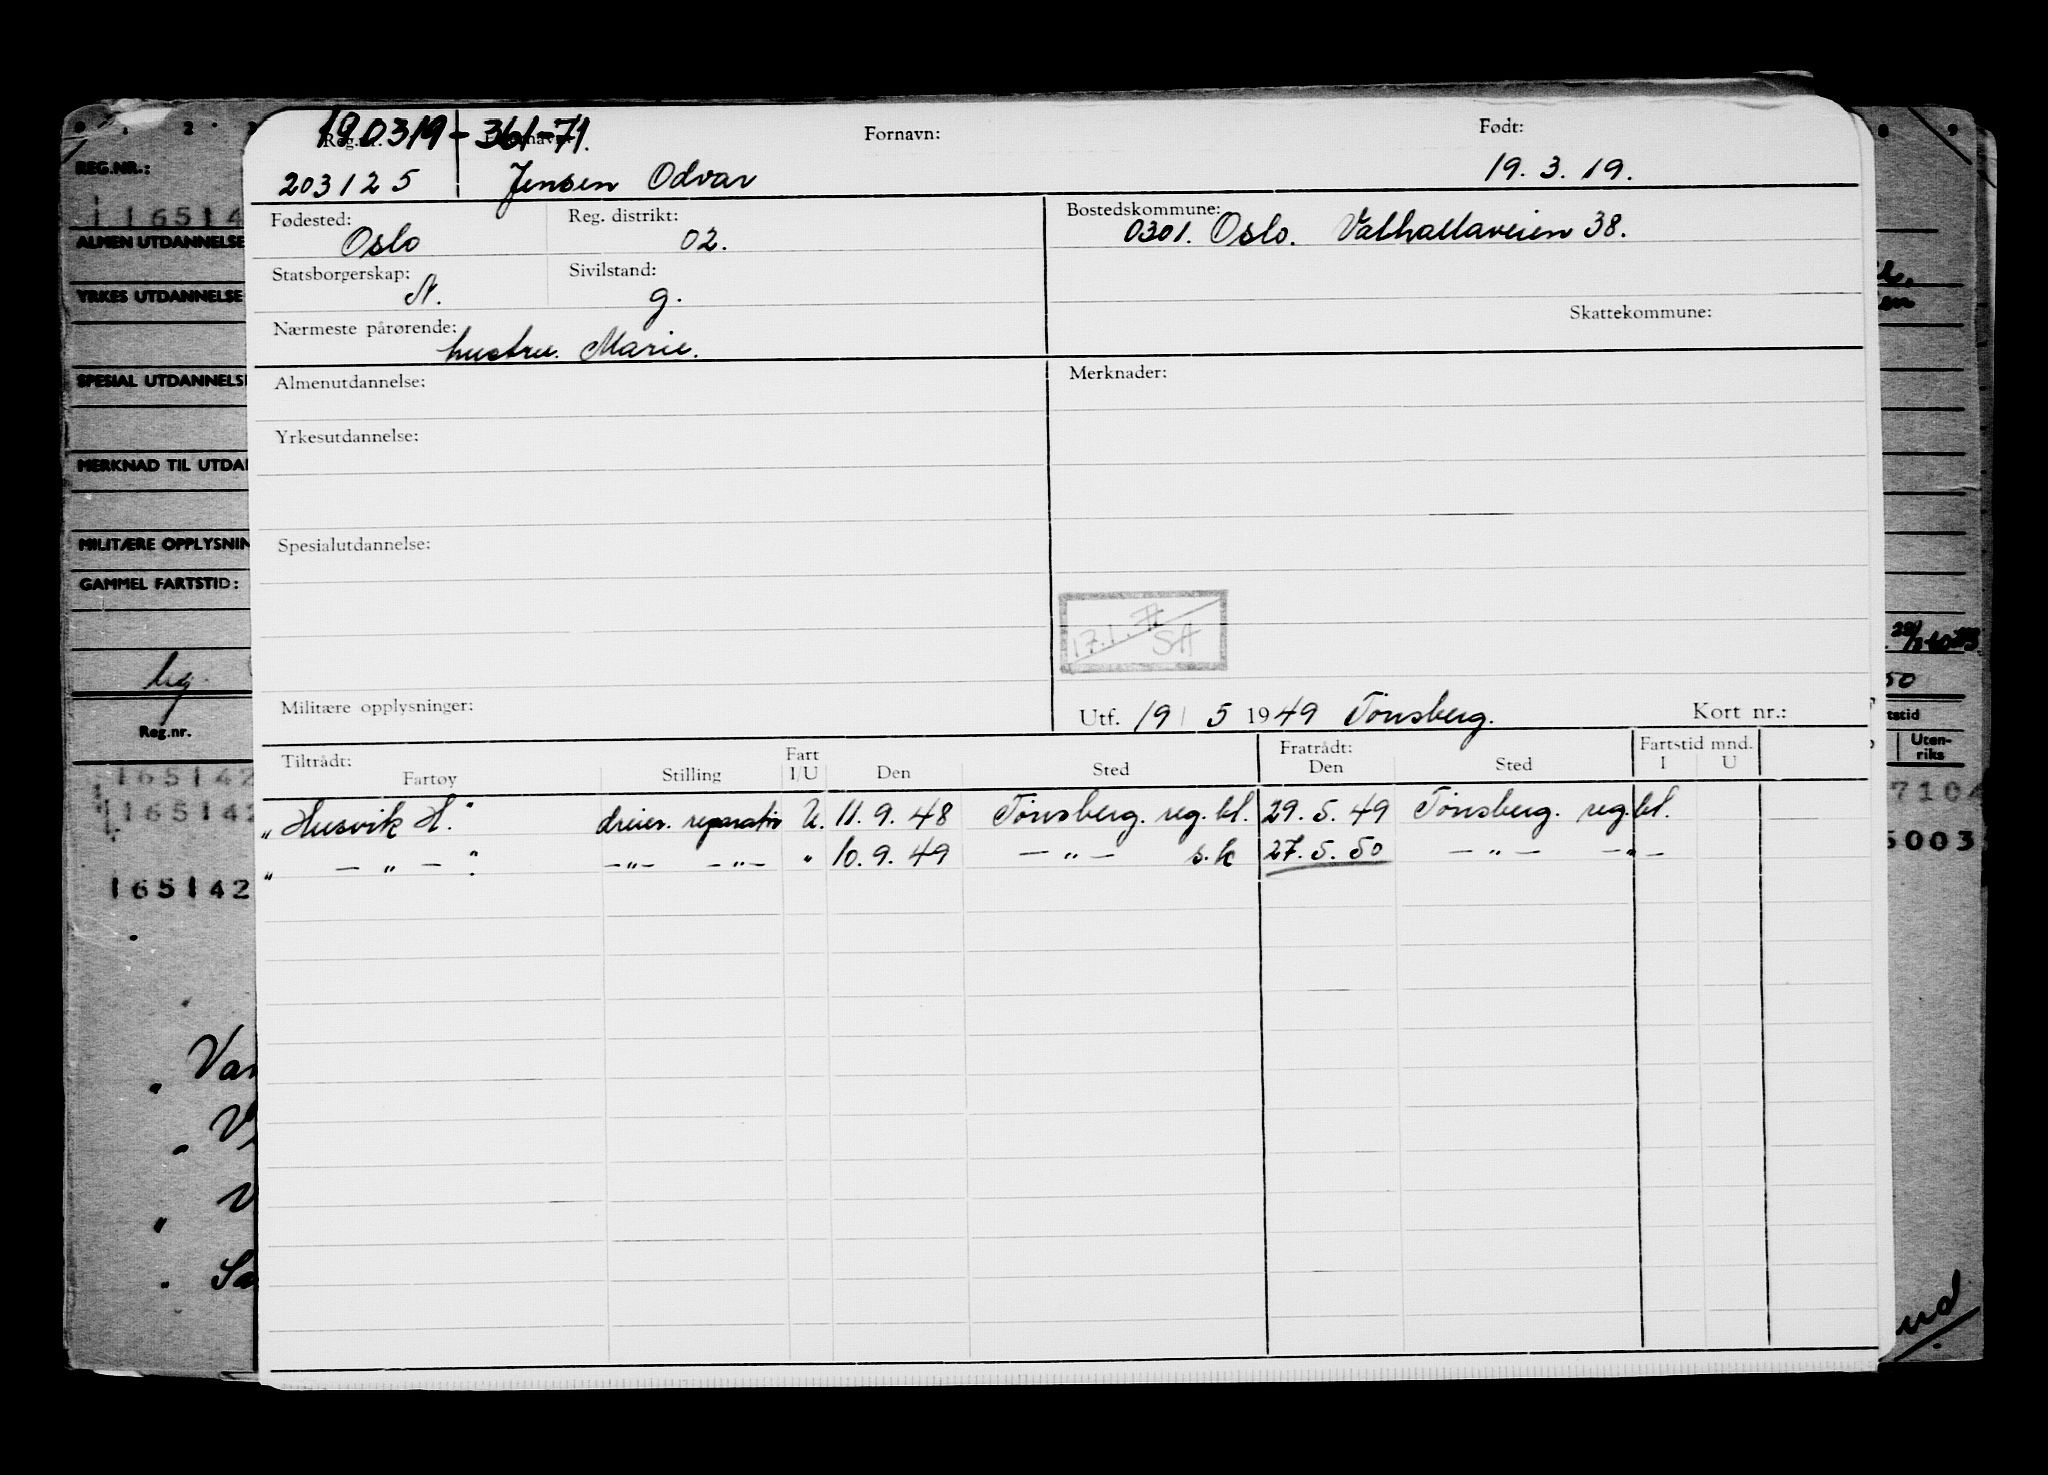 190319-361-71.
Reg.nr. Fornavn: Født:
203125 Jensen Odvar 19. 3. 19.
Fødested: Oslo Reg. distrikt: 02. Bostedskommune: 0301. Oslo. Valhallaveien 38.
Statsborgerskap: N. Sivilstand: g.
Skattekommune:
Nærmeste pårørende: hustru. Marie.
Almenutdannelse: Merknader:
Yrkesutdannelse:
Spesialutdannelse:
17.1.72 SH
Militære opplysninger: Utf. 19 / 5 1949 Tönsberg. Kort nr.:
Tiltrådt: Fartøy Stilling Fart I/U Den Sted Fratrådt: Den Sted Fartstid mnd. I U
„Husvik H." dreier. reparatør U. 11. 9. 48 Tönsberg. reg. bl. 29. 5. 49 Tönsberg. reg. bl.
„ — „ — " —„— —„— „ 10. 9. 49 — „ — s.k 27. 5. 50 — „ — —„—
REG.NR.:
116514
ALMEN UTDANNELSE
YRKES UTDANNELSE
SPESIAL UTDANNELSE
MERKNAD TIL UTDA
MILITÆRE OPPLYSNIN
GAMMEL FARTSTID:
Reg.nr.
165142
165142
165142
Van
V
V
Sa
50
tstid
Uten-
riks
7104
5003